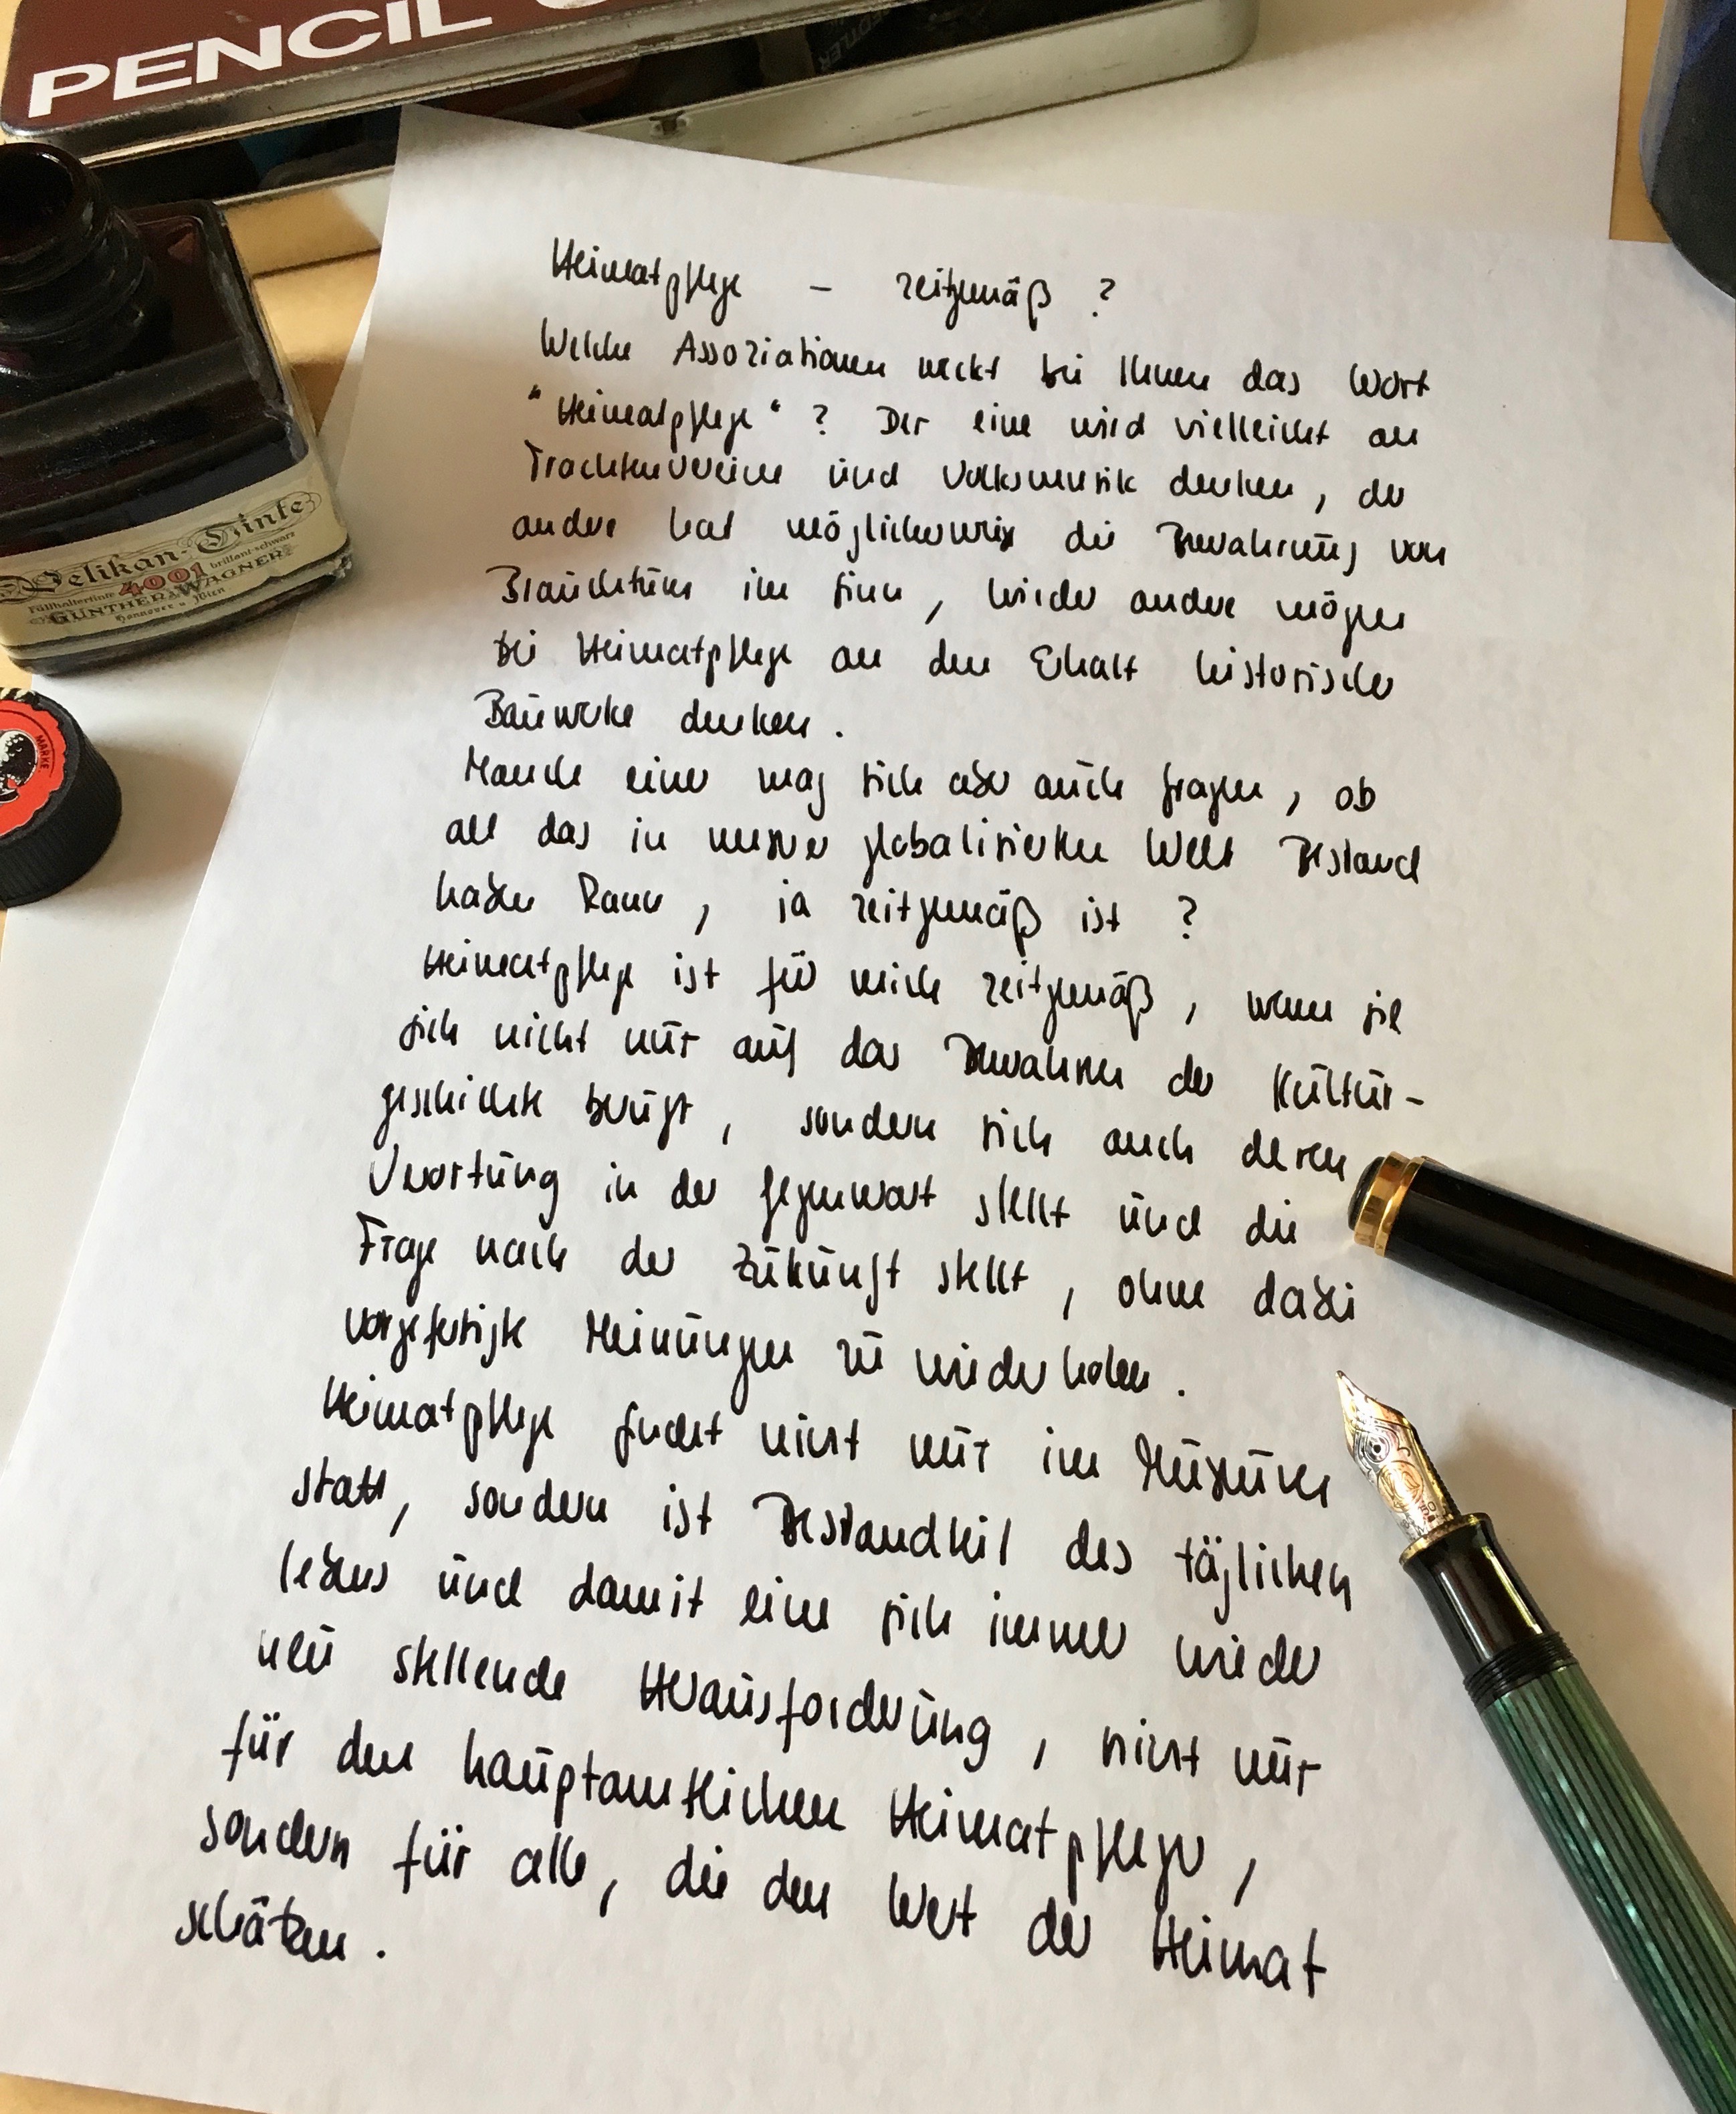 PENCIL
Heimatpflege – zeitgemäß ?
Welche Assoziationen weckt bei Ihnen das Wort
"Heimatpflege" ? Der eine wird vielleicht an
Trachtenvereine und Volksmusik denken, der
andere hat möglicherweise die Bewahrung von
Brauchtum im Sinn, wieder andere mögen
bei Heimatpflege an den Erhalt historischer
Bauwerke denken.
Manch einer mag sich aber auch fragen, ob
all das in unserer globalisierten Welt Bestand
haben kann, ja zeitgemäß ist ?
Heimatpflege ist für mich zeitgemäß, wenn sie
sich nicht nur auf das Bewahren der Kultur-
geschichte beruft, sondern sich auch deren
Verortung in der Gegenwart stellt und die
Frage nach der Zukunft stellt, ohne dabei
vorgefertigte Meinungen zu wiederholen.
Heimatpflege findet nicht nur im Museum
statt, sondern ist Bestandteil des täglichen
Lebens und damit eine sich immer wieder
neu stellende Herausforderung, nicht nur
für den hauptamtlichen Heimatpfleger,
sondern für alle, die den Wert der Heimat
schätzen.
Pelikan-Tinte
4001 brillant-schwarz
Füllhaltertinte
GÜNTHER & WAGNER
Hannover u. Wien
MARKE